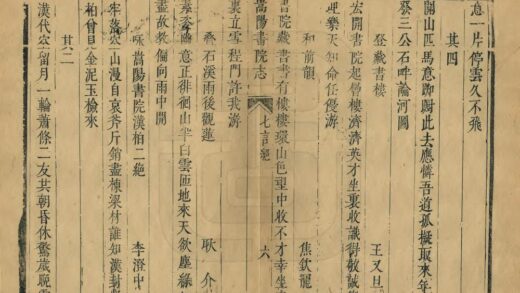 息一片停雲久不飛
其四
開山匹馬意踟躕此去應憐吾道孤擬取來年
發三公石畔論河圖
登藏書樓
王又旦
宏開書院起層樓濟濟英才坐裏收誠得敬誠
迎樂天知命任優游
和前韻
焦欽龍
書院藏書書有樓環山色望中收不才幸坐
裏立雪程門許我游
嵩陽書院志
七言絕
六
疊石溪雨後觀蓮
耿介
意正徘徊山半白雲匝地來天欲塵
盡故教偏向雨中開
嵩陽書院漢柏二絕
李澄中
牢落空山漫自哀斧斤銷盡棟梁材誰知漢封
柏曾見金泥玉檢來
其二
漢代空留月一輪蕭條二友共朝昏休驚歲晚